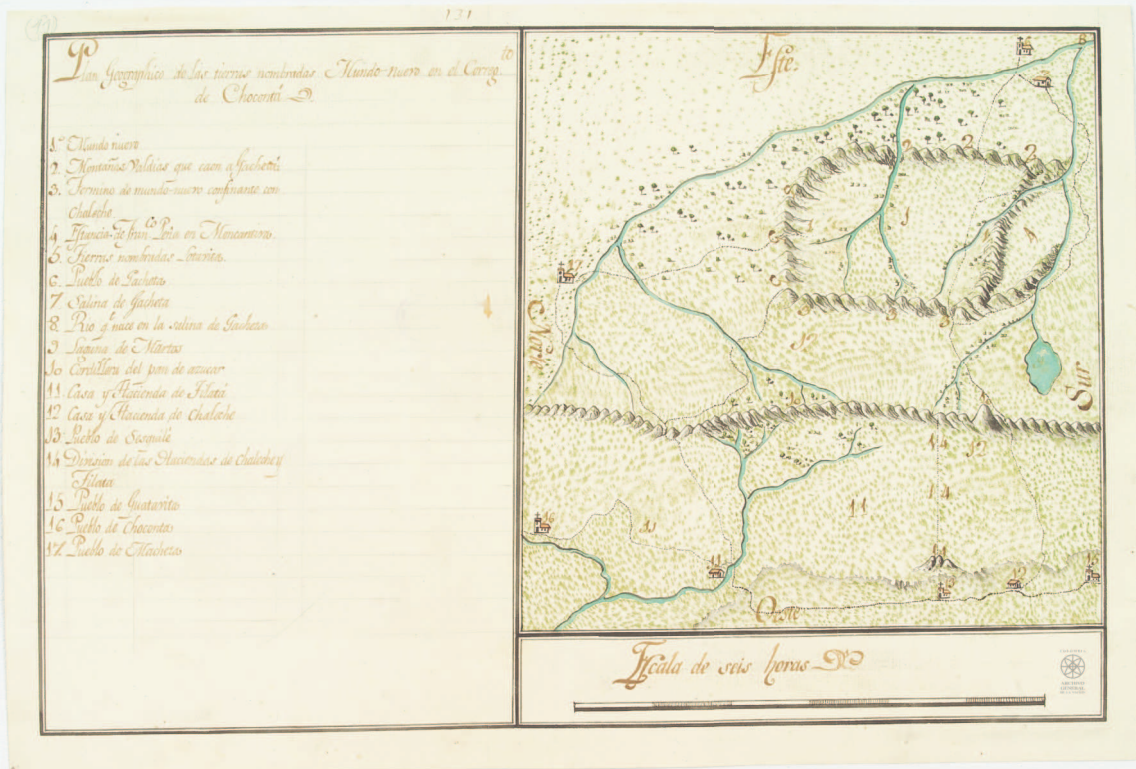 131
Plan Geographico de las tierras nombradas Mundo nuevo en el Correg.to
de Chocontá
1. Mundo nuevo
2. Montañas Valdias que caen a Guchetá
3. Termino de mundo nuevo confinante con
Chaleche
4. Estancia de Fran.co Peña en
5. Tierras nombradas
6. Pueblo de Gacheta
7. Salina de Gacheta
8. Rio q.e nace en la salina de Gacheta
9. Laguna de Martos
10 Cordillera del pan de azucar
11 Casa y Hacienda de Tilatá
12 Casa y Hacienda de Chaleche
13. Pueblo de Sesquile
14 Division de las Haciendas de Chaleche y
Tilata
15 Pueblo de Guatavita
16 Pueblo de Choconta
17. Pueblo de Macheta
Este
Norte
Sur
Oeste
Escala de seis horas
COLOMBIA
ARCHIVO
GENERAL